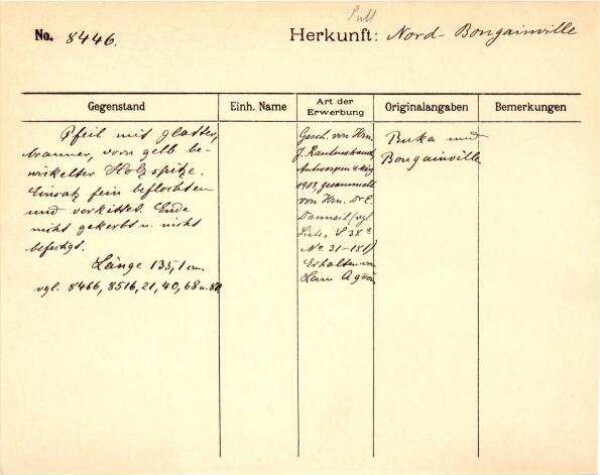 No. 8446.
Herkunft: Nord-Bougainville
Gegenstand
Einh. Name
Art der Erwerbung
Originalangaben
Bemerkungen
Pfeil mit glatter,
brauner, vorn gelb be-
wickelter Holzspitze.
Einsatz fein beflochten
und verkittet. Ende
nicht gekerbt u. nicht
befestigt.
Länge 135,1 cm.
vgl. 8466, 8516, 21, 40, 68 u.
Gesch. von Hrn.
J.
Antwerpen
gesammelt
von Hrn. Dr. E.
vgl.
Liste, S 38
No 31-181)
Erhalten von
Buka und
Bougainville